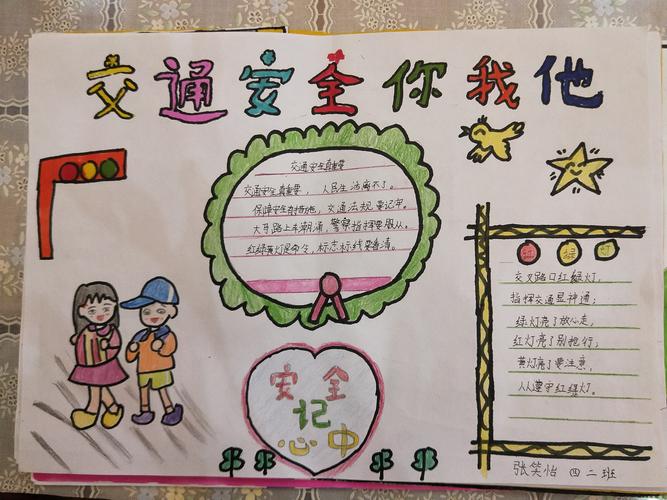 交通安全你我他
交通安全真重要
交通安全真重要，人民生活离不了。
保障安全有措施，交通法规要记牢。
大马路上车潮涌，警察指挥要服从。
红绿黄灯是命令，标志标线要看清。
红 绿 灯
交叉路口红绿灯，
指挥交通显神通；
绿灯亮了放心走，
红灯亮了别抢行，
黄灯亮了要注意，
人人遵守红绿灯。
安全
记
心中
张笑怡 四二班